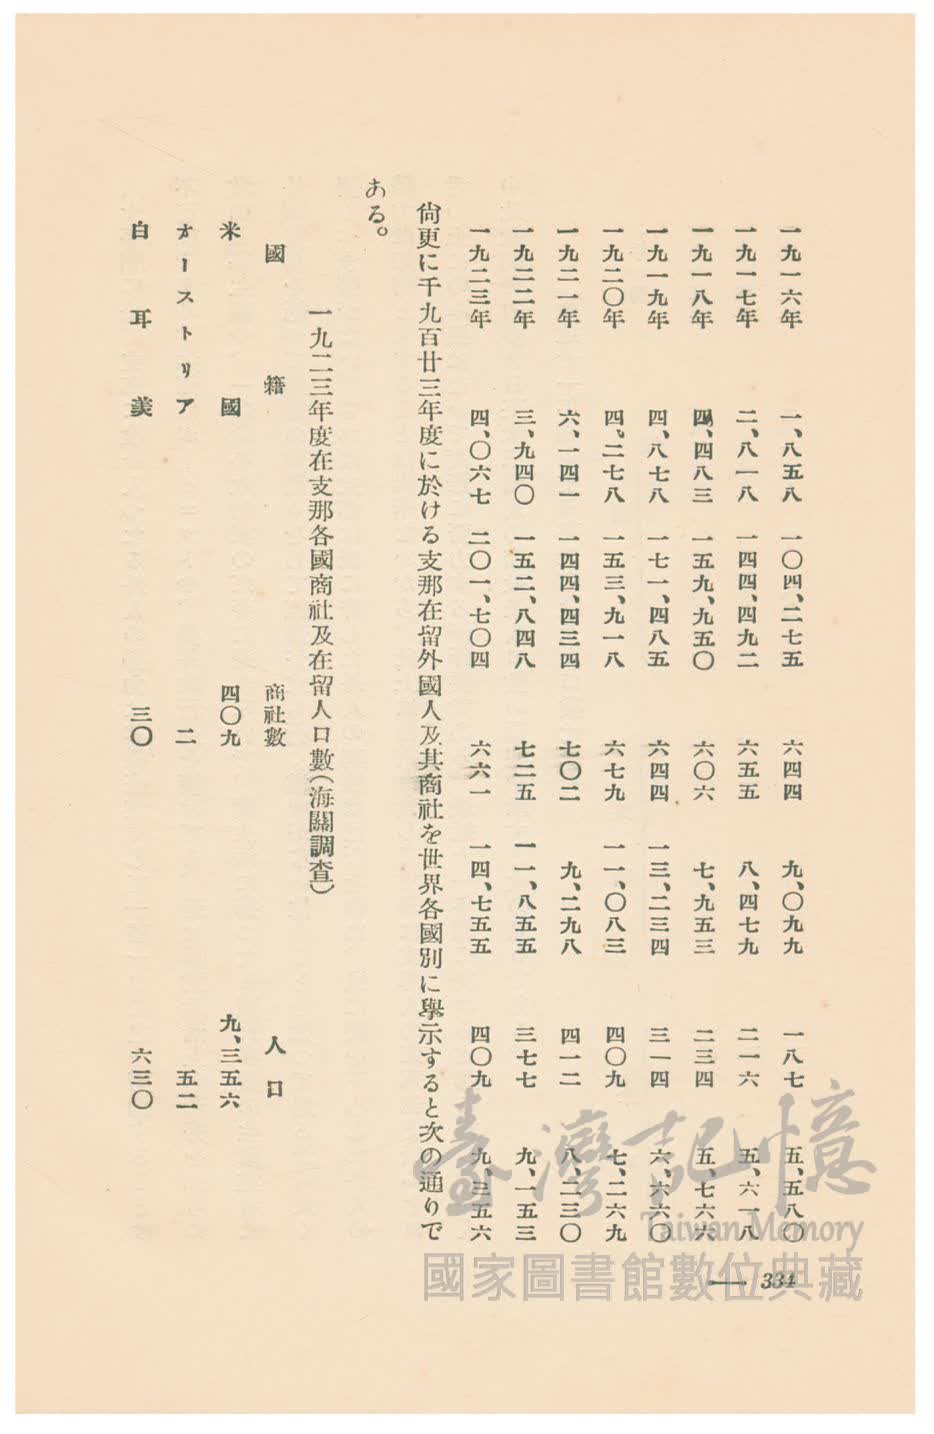 一九一六年 一、八五八 一〇四、二七五 六四四 九、〇九九 一八七 五、五八〇
一九一七年 二、八一八 一四四、四九二 六五五 八、四七九 二一六 五、六一八
一九一八年 四、四八三 一五九、九五〇 六〇六 七、九五三 二三四 五、七六六
一九一九年 四、八七八 一七一、四八五 六四四 一三、二三四 三一四 六、六六〇
一九二〇年 四、二七八 一五三、九一八 六七九 一一、〇八三 四〇九 七、二六九
一九二一年 六、一四一 一四四、四三四 七〇二 九、二九八 四一二 八、二三〇
一九二二年 三、九四〇 一五二、八四八 七二五 一一、八五五 三七七 九、一五三
一九二三年 四、〇六七 二〇一、七〇四 六六一 一四、七五五 四〇九 九、三五六
尙更に千九百廿三年度に於ける支那在留外國人及其商社を世界各國別に擧示すると次の通りで
ある。
一九二三年度在支那各國商社及在留人口數（海關調査）
國籍 商社數 人口
米國 四〇九 九、三五六
オーストリア 二 五二
白耳義 三〇 六三〇
334
臺灣記憶
Taiwan Memory
國家圖書館數位典藏